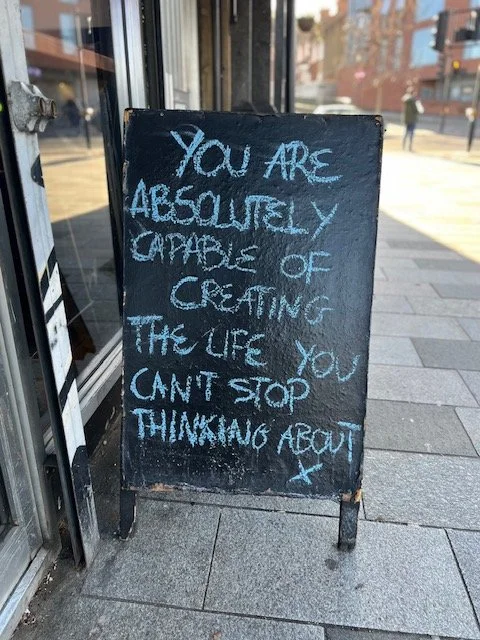 YOU ARE
ABSOLUTELY
CAPABLE OF
CREATING
THE LIFE YOU
CAN'T STOP
THINKING ABOUT
X